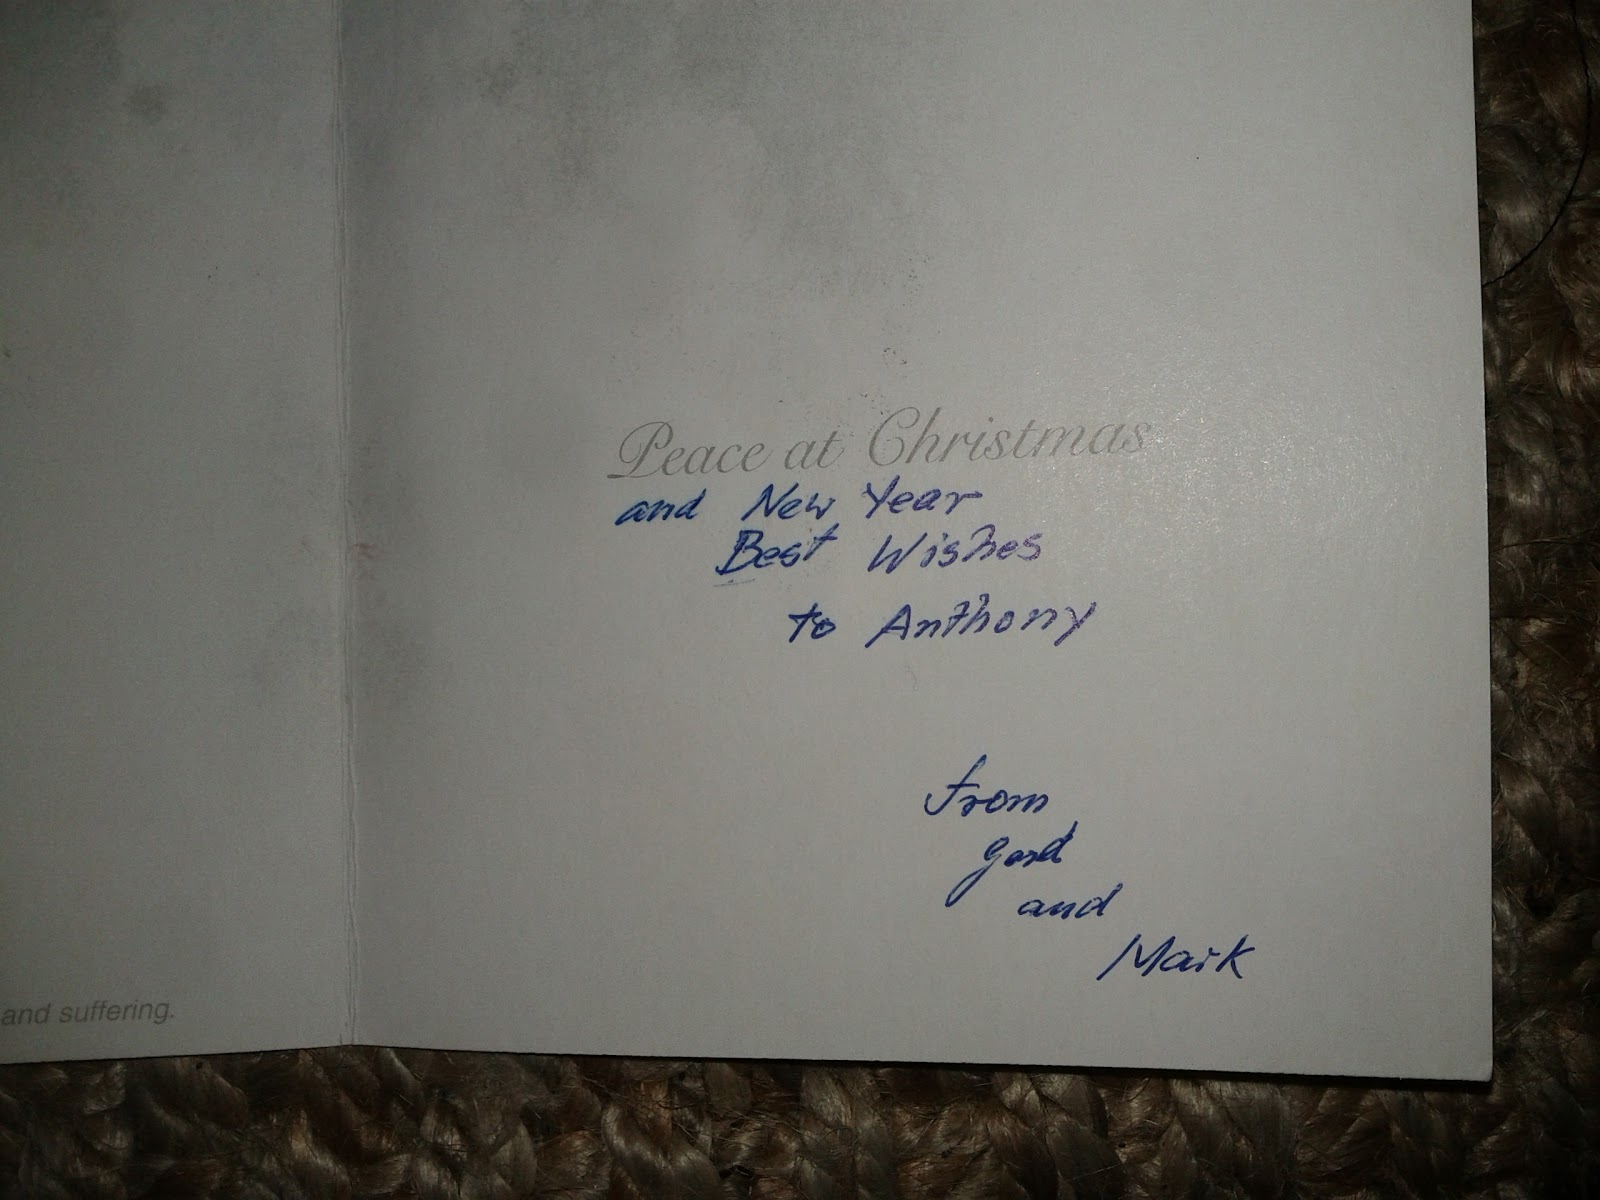 Peace at Christmas
and New Year
Best Wishes
to Anthony
From
Gord
and
Mark
and suffering.